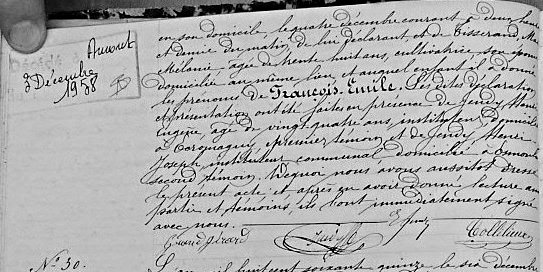 en son domicile, le quatre décembre courant à deux heures
et demie du matin, de lui déclarant et de Tisserand Marie
Mélanie agée de trente huit ans, cultivatrice son épouse
domiciliée au même lieu, et auquel enfant il a donné
les prénoms de François Emile. Les dites déclaration
et présentation ont été faites en présence de Jendy Henri
Eugène, agé de vingt quatre ans, instituteur, domicilié
à premier témoin, et de Jendy Henri
Joseph instituteur communal domicilié à
second témoin. De quoi nous avons aussitôt dressé
le présent acte et après en avoir donné lecture aux
partie et témoins, ils l'ont immédiatement signé
avec nous.
Grandgirard
Décédé à
Auxout
3 Décembre
1958
No. 30.
L'an mil huit cent soixante quinze le six décembre